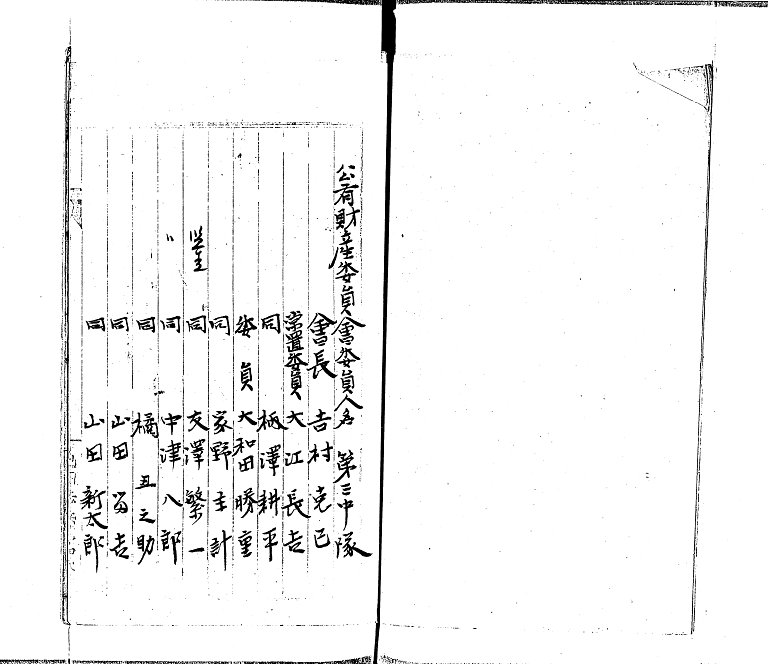 公有財産委員會委員人名 第三中隊
會長 吉村克己
常置委員 大江長吉
同 柄澤耕平
委員 大和田勝重
同 家野主計
同 友澤繁一
〃 同 中津八郎
同 橘丑之助
同 山田留吉
同 山田新太郎